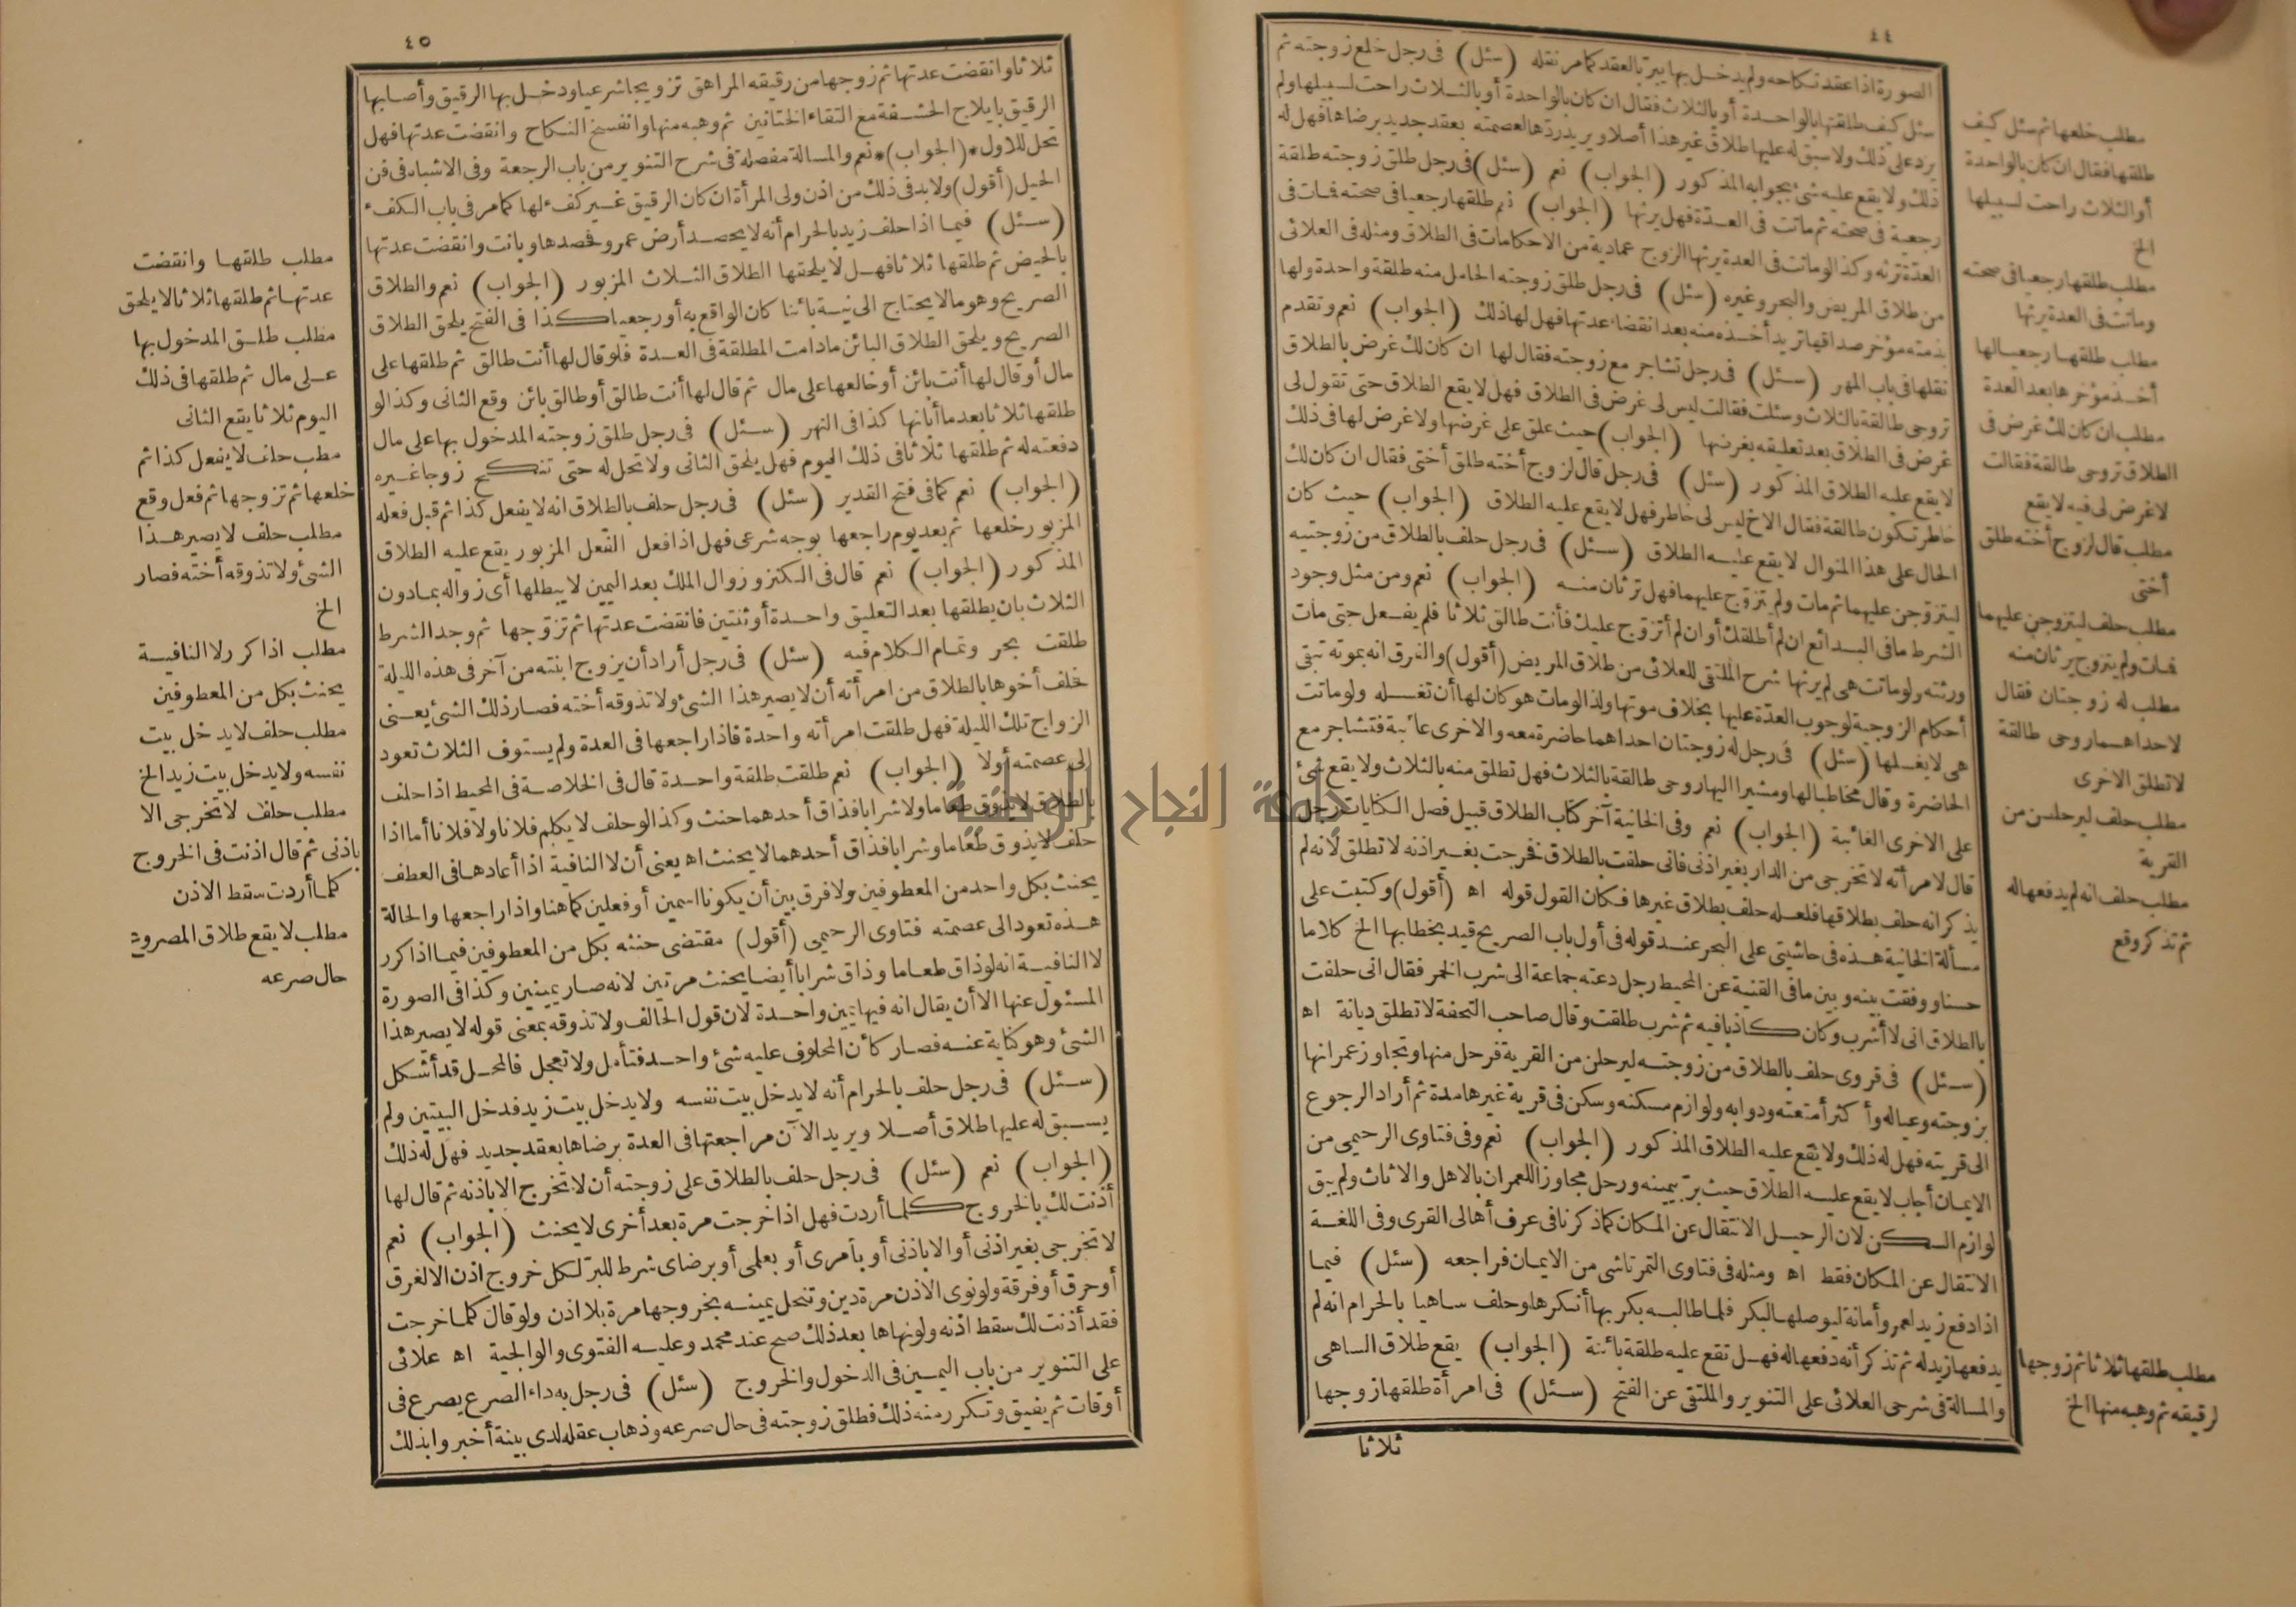 ٤٤
الصورة اذا عقد نكاحه ولم يدخل بها يبر بالعقد كما مر نقله (سئل) فى رجل خلع زوجته ثم
سئل كيف طلقتها بالواحدة أو بالثلاث فقال ان كان بالواحدة أو بالثلاث راحت لسبيلها ولم
يرد على ذلك ولا سبق له عليها طلاق غير هذا أصلا ويريد ردها لعصمته بعقد جديد برضاها فهل له
ذلك ولا يقع عليه شئ بجوابه المذكور (الجواب) نعم (سئل) فى رجل طلق زوجته طلقة
رجعية فى صحته ثم ماتت فى العدّة فهل يرثها (الجواب) نعم طلقها رجعيا فى صحته فمات فى
العدّة ترثه وكذا لو ماتت فى العدة يرثها الزوج عمادية من الاحكامات فى الطلاق ومثله فى العلائى
من طلاق المريض والبحر وغيره (سئل) فى رجل طلق زوجته الحامل منه طلقة واحدة ولها
بذمته مؤخر صداقها تريد أخذه منه بعد انقضاء عدتها فهل لها ذلك (الجواب) نعم وتقدم
نقلها فى باب المهر (سئل) فى رجل تشاجر مع زوجته فقال لها ان كان لك غرض بالطلاق
تروحى طالقة بالثلاث وسئلت فقالت ليس لى غرض فى الطلاق فهل لا يقع الطلاق حتى تقول لى
غرض فى الطلاق بعد تعليقه بغرضها (الجواب) حيث علق على غرضها ولا غرض لها فى ذلك
لا يقع عليه الطلاق المذكور (سئل) فى رجل قال لزوج أخته طلق أختى فقال ان كان لك
خاطر تكون طالقة فقال الاخ ليس لى خاطر فهل لا يقع عليه الطلاق (الجواب) حيث كان
الحال على هذا المنوال لا يقع عليه الطلاق (سئل) فى رجل حلف بالطلاق من زوجتيه
ليتزوجن عليهما ثم مات ولم يتزوّج عليهما فهل ترثان منه (الجواب) نعم ومن مثل وجود
الشرط ما فى البدائع ان لم أطلقك أو ان لم أتزوّج عليك فأنت طالق ثلاثا فلم يفعل حتى مات
ورثته ولو ماتت هى لم يرثها شرح الملتقى للعلائى من طلاق المريض (أقول) والفرق انه بموته تبقى
أحكام الزوجية لوجوب العدّة عليها بخلاف موتها ولذا لو مات هو كان لها أن تغسله ولو ماتت
هى لا يغسلها (سئل) فى رجل له زوجتان احداهما حاضرة معه والاخرى غائبة فتشاجر مع
الحاضرة وقال مخاطبا لها ومشيرا اليها روحى طالقة بالثلاث فهل تطلق منه بالثلاث ولا يقع شئ
على الاخرى الغائبة (الجواب) نعم وفى الخانية آخر كتاب الطلاق قبيل فصل الكنايات رجل
قال لامرأته لا تخرجى من الدار بغير اذنى فانى حلفت بالطلاق فخرجت بغير اذنه لا تطلق لانه لم
يذكر انه حلف بطلاقها فلعله حلف بطلاق غيرها فكان القول قوله اه (أقول) وكتبت على
مسألة الخانية هذه فى حاشيتى على البحر عند قوله فى أول باب الصريح قيد بخطابها الخ كلاما
حسنا ووفقت بينه وبين ما فى القنية عن المحيط رجل دعته جماعة الى شرب الخمر فقال انى حلفت
بالطلاق انى لا أشرب وكان كاذبا فيه ثم شرب طلقت وقال صاحب التحفة لا تطلق ديانة اه
(سئل) فى قروى حلف بالطلاق من زوجته ليرحلن من القرية فرحل منها وتجاوز عمرانها
بزوجته وعياله وأكثر أمتعته ودوابه ولوازم مسكنه وسكن فى قرية غيرها مدة ثم أراد الرجوع
الى قريته فهل له ذلك ولا يقع عليه الطلاق المذكور (الجواب) نعم وفى فتاوى الرحيمى من
الايمان أجاب لا يقع عليه الطلاق حيث برّ بيمينه ورحل مجاوزا للعمران بالاهل والاثاث ولم يبق
لوازم السكن لان الرحيل الانتقال عن المكان كما ذكرنا فى عرف أهالى القرى وفى اللغة
الانتقال عن المكان فقط اه ومثله فى فتاوى التمرتاشى من الايمان فراجعه (سئل) فيما
اذا دفع زيد لعمرو أمانة ليوصلها لبكر فلما طالبه بكر بها أنكرها وحلف ساهيا بالحرام انه لم
يدفعها زيد له ثم تذكر أنه دفعها له فهل تقع عليه طلقة بائنة (الجواب) يقع طلاق الساهى
والمسالة فى شرحى العلائى على التنوير والملتقى عن الفتح (سئل) فى امرأة طلقها زوجها
ثلاثا
مطلب خلعها ثم سئل كيف
طلقها فقال ان كان بالواحدة
أو الثلاث راحت لسبيلها
الخ
مطلب طلقها رجعيا فى صحته
وماتت فى العدة يرثها
مطلب طلقها رجعيا لها
أخذ مؤخرها بعد العدة
مطلب ان كان لك غرض فى
الطلاق تروحى طالقة فقالت
لا غرض لى فيه لا يقع
مطلب قال لزوج أخته طلق
أختى
مطلب حلف ليتزوجن عليهما
فمات ولم يتزوج يرثان منه
مطلب له زوجتان فقال
لاحداهما روحى طالقة
لا تطلق الاخرى
مطلب حلف ليرحلن من
القرية
مطلب حلف انه لم يدفعها له
ثم تذكر وقع
مطلب طلقها ثلاثا ثم زوجها
لرقيقه ثم وهبه منها الخ
٤٥
ثلاثا وانقضت عدتها ثم زوجها من رقيقه المراهق تزويجا شرعيا ودخل بها الرقيق وأصابها
الرقيق بايلاج الحشفة مع التقاء الختانين ثم وهبه منها وانفسخ النكاح وانقضت عدتها فهل
تحل للاول *(الجواب)* نعم والمسالة مفصلة فى شرح التنوير من باب الرجعة وفى الاشباه فى فن
الحيل (أقول) ولا بد فى ذلك من اذن ولى المرأة ان كان الرقيق غير كفء لها كما مر فى باب الكفء
(سئل) فيما اذا حلف زيد بالحرام أنه لا يحصد أرض عمرو فحصدها وبانت وانقضت عدتها
بالحيض ثم طلقها ثلاثا فهل لا يلحقها الطلاق الثلاث المزبور (الجواب) نعم والطلاق
الصريح وهو ما لا يحتاج الى نية بائنا كان الواقع به أو رجعيا كذا فى الفتح يلحق الطلاق
الصريح ويلحق الطلاق البائن ما دامت المطلقة فى العدة فلو قال لها أنت طالق ثم طلقها على
مال أو قال لها أنت بائن أو خالعها على مال ثم قال لها أنت طالق أو طالق بائن وقع الثانى وكذا لو
طلقها ثلاثا بعد ما أبانها كذا فى النهر (سئل) فى رجل طلق زوجته المدخول بها على مال
دفعته له ثم طلقها ثلاثا فى ذلك اليوم فهل يلحق الثانى ولا تحل له حتى تنكح زوجا غيره
(الجواب) نعم كما فى فتح القدير (سئل) فى رجل حلف بالطلاق انه لا يفعل كذا ثم قبل فعله
المزبور خلعها ثم بعد يوم راجعها بوجه شرعى فهل اذا فعل الفعل المزبور يقع عليه الطلاق
المذكور (الجواب) نعم قال فى الكنز وزوال الملك بعد اليمين لا يبطلها أى زواله بمادون
الثلاث بان يطلقها بعد التعليق واحدة أو ثنتين فانقضت عدتها ثم تزوّجها ثم وجد الشرط
طلقت بحر وتمام الكلام فيه (سئل) فى رجل أراد أن يزوج ابنته من آخر فى هذه الليلة
فحلف أخوها بالطلاق من امرأته أن لا يصير هذا الشئ ولا تذوقه أخته فصار ذلك الشئ يعنى
الزواج تلك الليلة فهل طلقت امرأته واحدة فاذا راجعها فى العدة ولم يستوف الثلاث تعود
الى عصمته أولا (الجواب) نعم طلقت طلقة واحدة قال فى الخلاصة فى المحيط اذا حلف
بالطلاق لا يذوق طعاما ولا شرابا فذاق أحدهما حنث وكذا لو حلف لا يكلم فلانا ولا فلانا أما اذا
حلف لا يذوق طعاما وشرابا فذاق أحدهما لا يحنث اه يعنى أن لا النافية اذا أعادها فى العطف
يحنث بكل واحد من المعطوفين ولا فرق بين أن يكونا اسمين أو فعلين كما هنا واذا راجعها والحالة
هذه تعود الى عصمته فتاوى الرحيمى (أقول) مقتضى حنثه بكل من المعطوفين فيما اذا كرر
لا النافية انه لو ذاق طعاما وذاق شرابا أيضا يحنث مرتين لانه صار يمينين وكذا فى الصورة
المسئول عنها الا أن يقال انه فيها يمين واحدة لان قول الحالف ولا تذوقه بمعنى قوله لا يصير هذا
الشئ وهو كناية عنه فصار كأن المحلوف عليه شئ واحد فتأمل ولا تعجل فالمحل قد أشكل
(سئل) فى رجل حلف بالحرام أنه لا يدخل بيت نفسه ولا يدخل بيت زيد فدخل البيتين ولم
يسبق له عليها طلاق أصلا ويريد الآن مراجعتها فى العدة برضاها بعقد جديد فهل له ذلك
(الجواب) نعم (سئل) فى رجل حلف بالطلاق على زوجته أن لا تخرج الا باذنه ثم قال لها
أذنت لك بالخروج كلما أردت فهل اذا خرجت مرة بعد أخرى لا يحنث (الجواب) نعم
لا تخرجى بغير اذنى أو الا باذنى أو بأمرى أو بعلمى أو برضاى شرط للبرّ لكل خروج اذن الا لغرق
أو حرق أو فرقة ولو نوى الاذن مرة دين وتنحل يمينه بخروجها مرة بلا اذن ولو قال كلما خرجت
فقد أذنت لك سقط اذنه ولو نهاها بعد ذلك صح عند محمد وعليه الفتوى والوالجية اه علائى
على التنوير من باب اليمين فى الدخول والخروج (سئل) فى رجل به داء الصرع يصرع فى
أوقات ثم يفيق وتكرر منه ذلك فطلق زوجته فى حال صرعه وذهاب عقله لدى بينة أخبروا بذلك
مطلب طلقها وانقضت
عدتها ثم طلقها ثلاثا لا يلحق
مطلب طلق المدخول بها
على مال ثم طلقها فى ذلك
اليوم ثلاثا يقع الثانى
مطب حلف لا يفعل كذا ثم
خلعها ثم تزوجها ثم فعل وقع
مطلب حلف لا يصير هذا
الشئ ولا تذوقه أخته فصار
الخ
مطلب اذا كرر لا النافية
يحنث بكل من المعطوفين
مطلب حلف لا يدخل بيت
نفسه ولا يدخل بيت زيد الخ
مطلب حلف لا تخرجى الا
باذنى ثم قال اذنت فى الخروج
كلما أردت سقط الاذن
مطلب لا يقع طلاق المصروع
حال صرعه
جامعة النجاح الوطنية